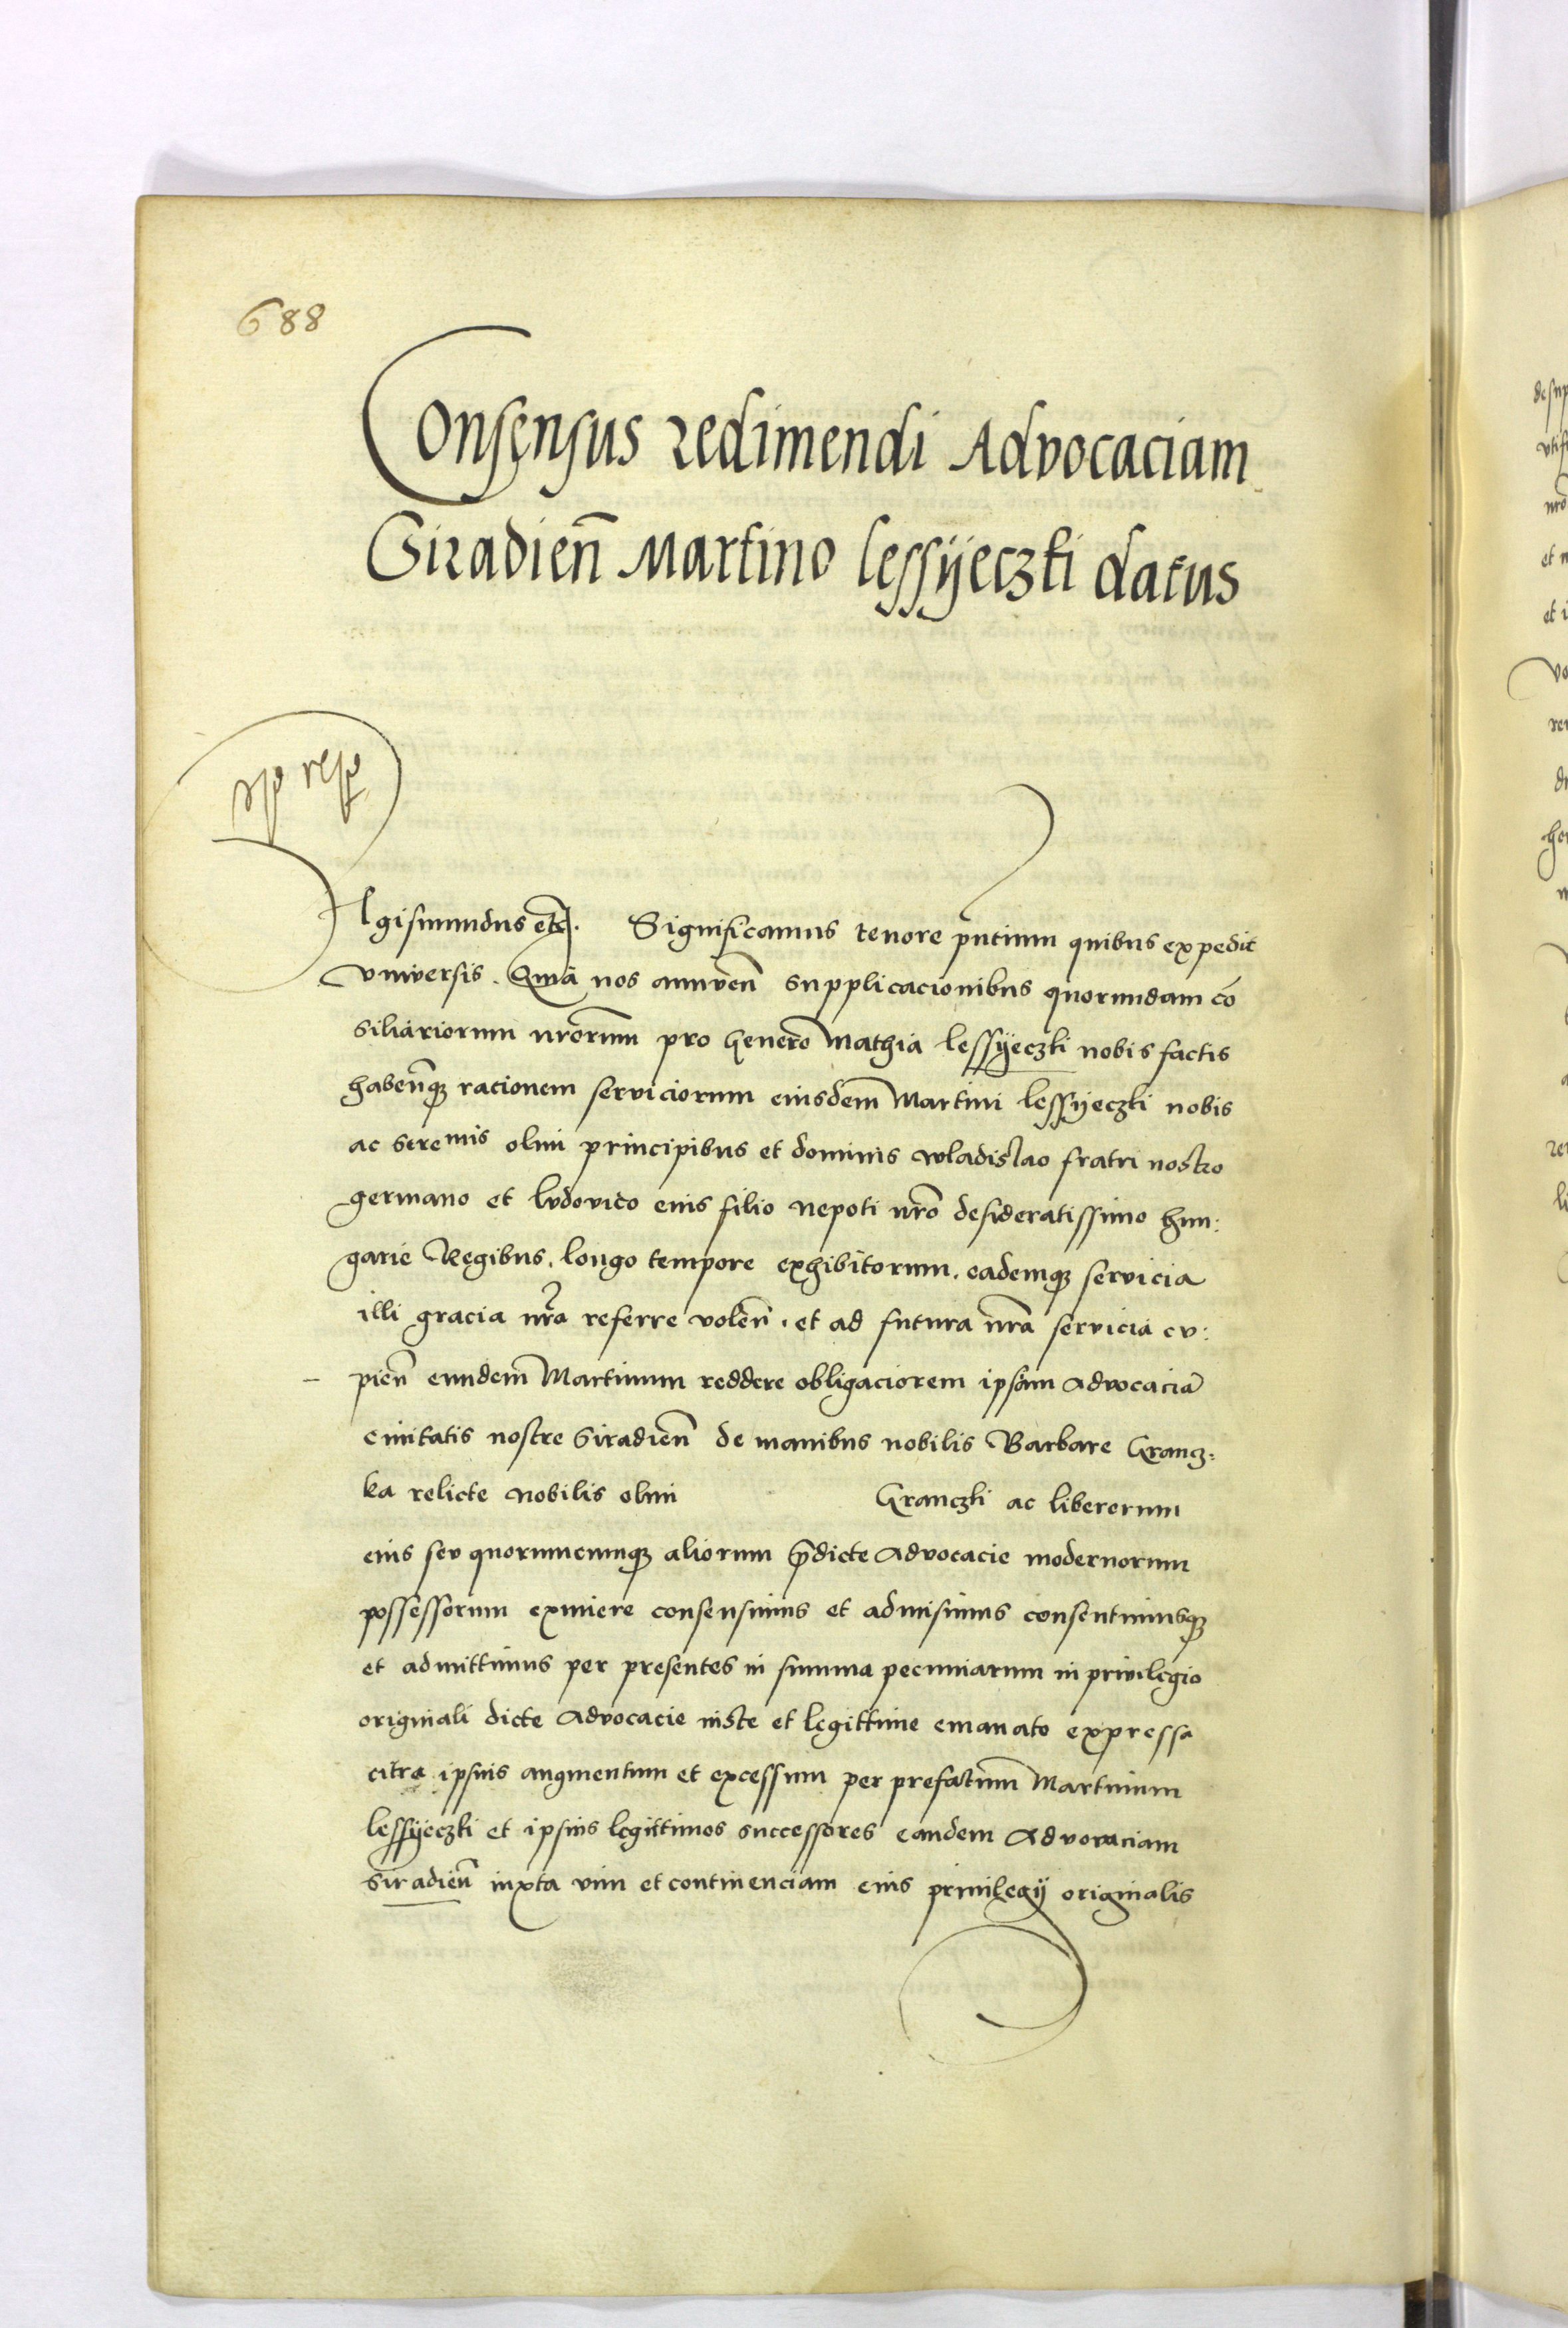 688
Consensus redimendi Advocaciam
Siradien̄ Martino lessijeczki datus
Sigismundus etc̄. Significamus tenore pn̄tium quibus expedit
vniversis. Quia nos annuen̄ supplicacionibus quorundam cō
siliariorum nr̄orum pro Genero Mathia lessyeczki nobis factis
haben̄q; racionem serviciorum eiusdem Martini lessijeczki nobis
ac serenis olim principibus et dominis wladislao fratri nostro
germano et ludovico eius filio nepoti nr̄o desideratissimo hun:
garie Regibus. longo tempore exhibitorum. eademq; servicia
illi gracia nr̄a referre volen̄. et ad futura nr̄a servicia cu:
pien̄ eundem Martinum reddere obligaciorem ipsam advocaciā
civitatis nostre Siradien̄ de manibus nobilis Barbare Grancz:
ka relicte nobilis olim Granczki ac liberorum
eius seu quorumcumq; aliorum p̄dicte advocacie modernorum
possessorum eximere consensimus et admisimus consentimusq;
et admittimus per presentes in summa pecuniarum in privilegio
originali dicte advocacie iuste et legittime emanato expressa
citra ipsius augmentum et excessum per prefatum Martinum
lessyeczki et ipsius legittimos successores eandem advocaciam
siradien̄ iuxta vim et continenciam eius privilegij originalis